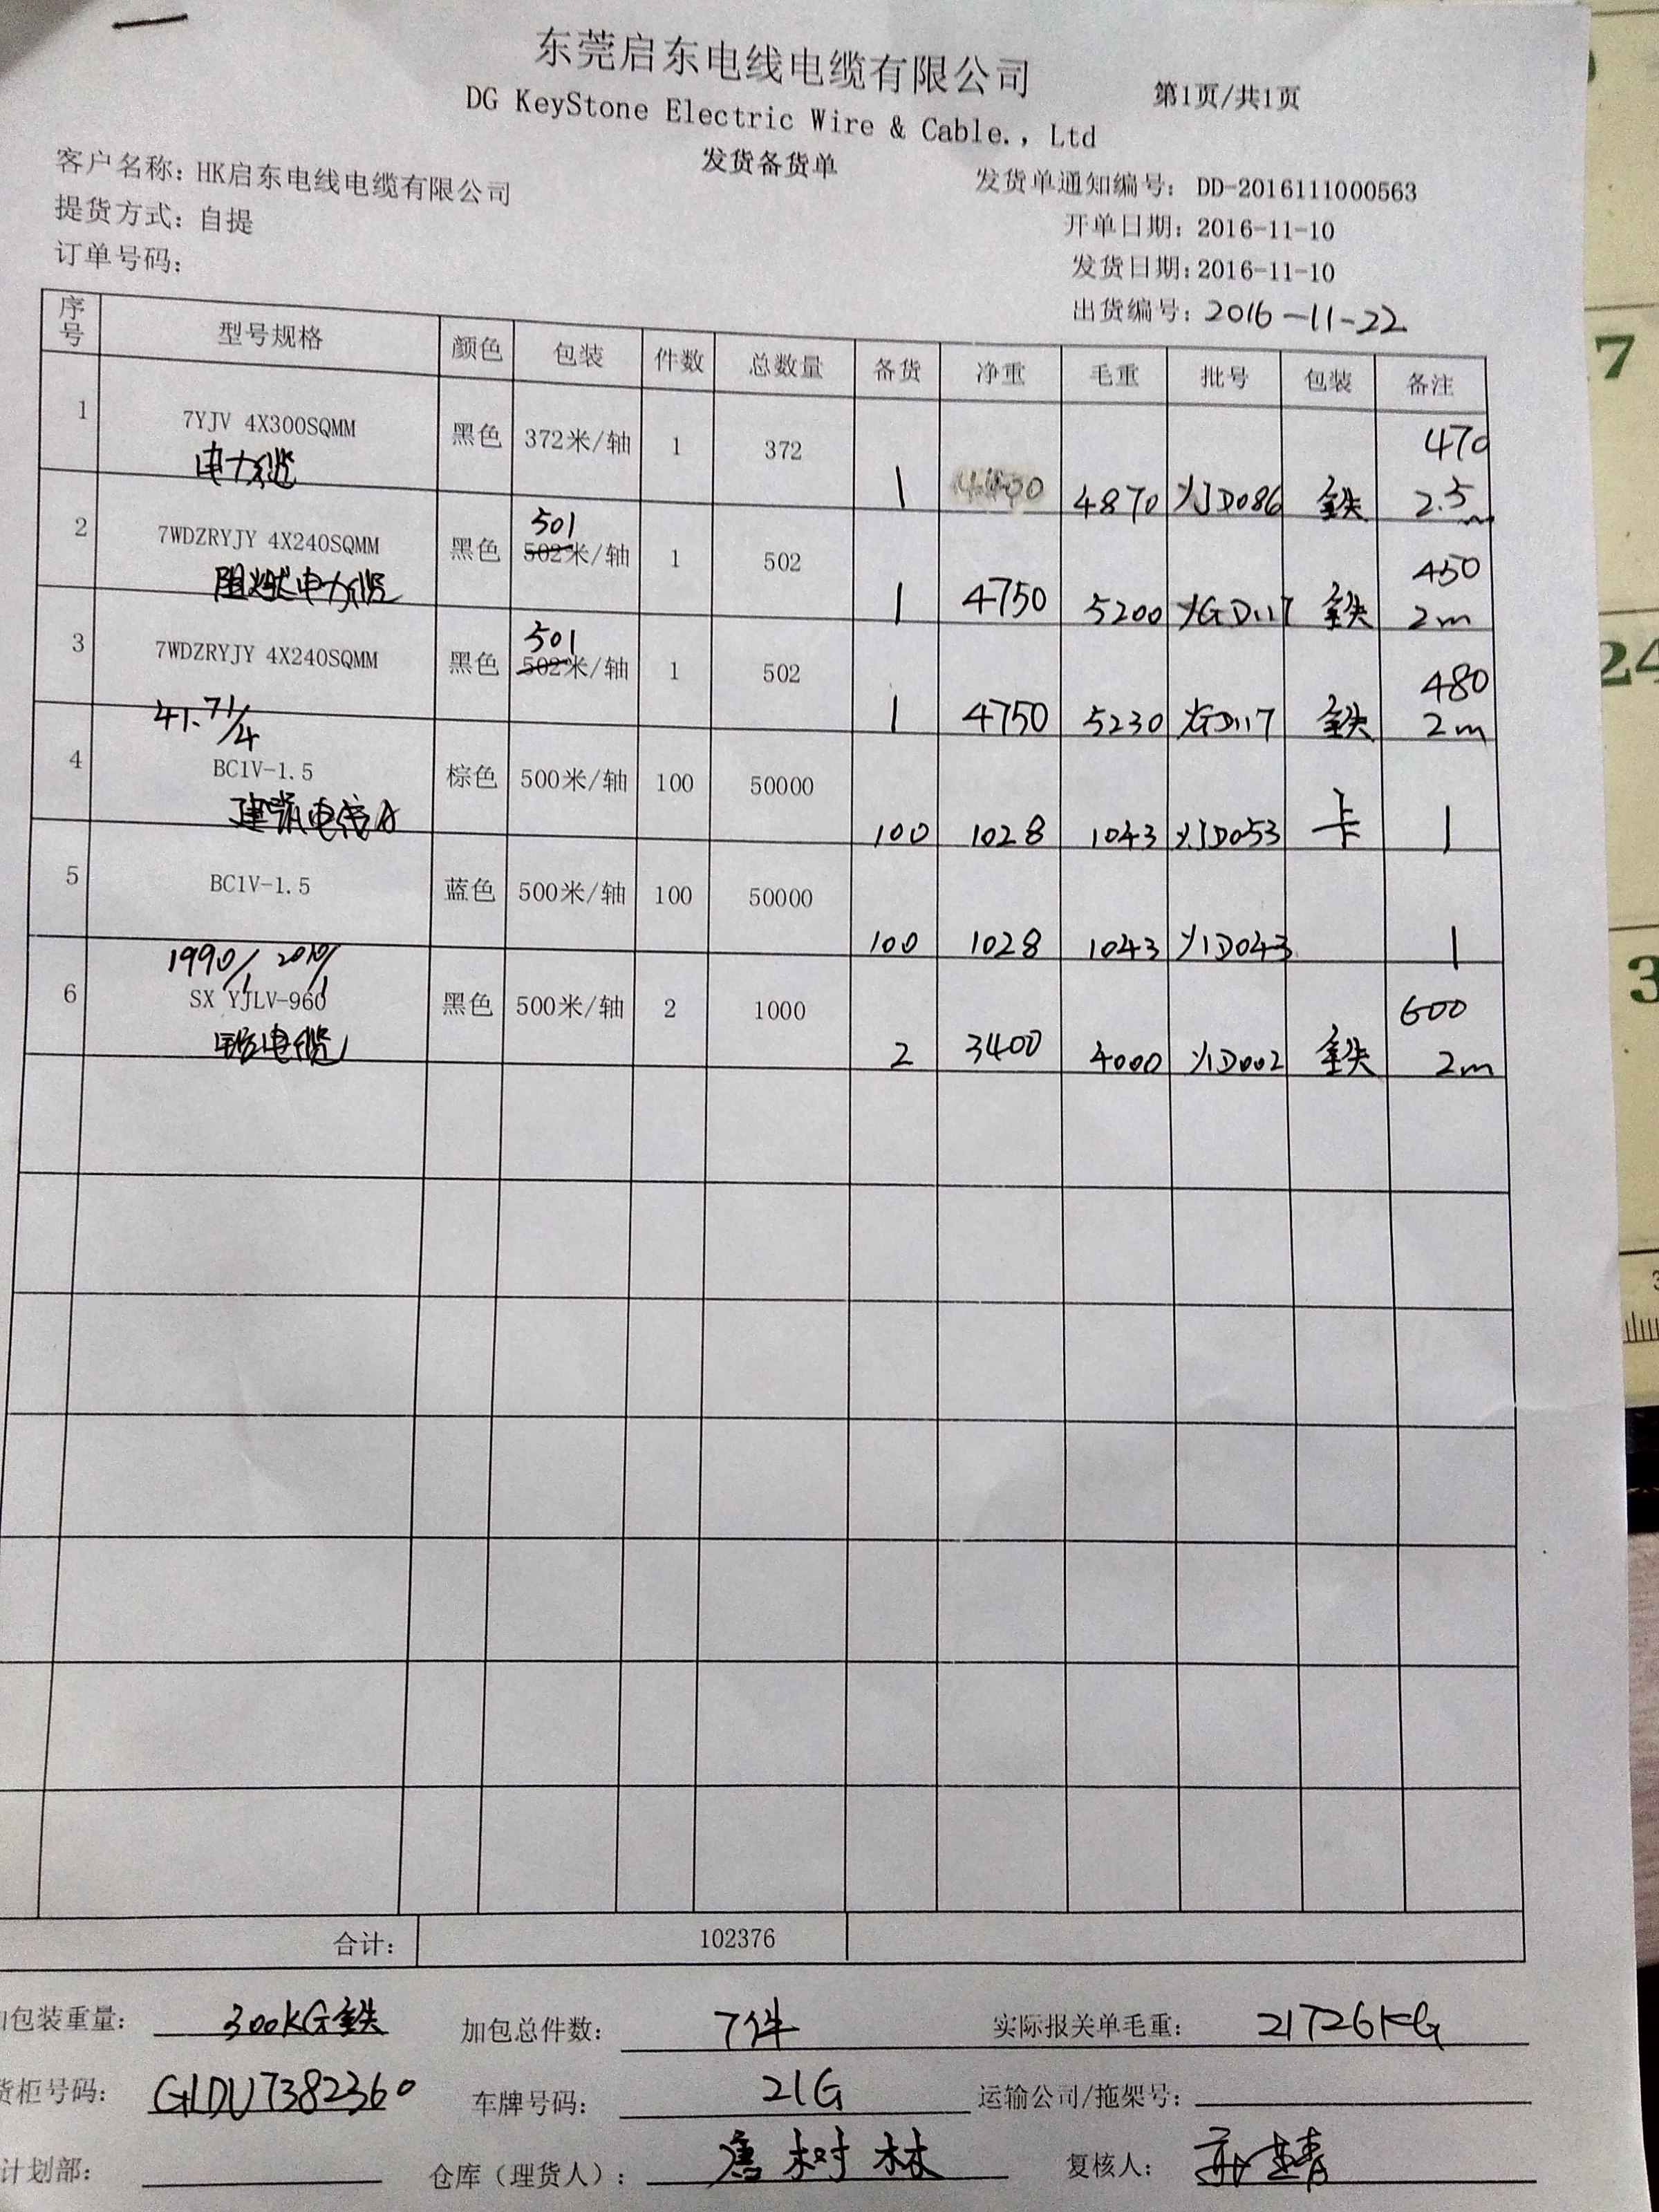 东莞启东电线电缆有限公司
DG KeyStone Electric Wire & Cable., Ltd
第1页/共1页
发货备货单
客户名称: HK启东电线电缆有限公司
发货单通知编号: DD-2016111000563
提货方式: 自提
开单日期: 2016-11-10
订单号码:
发货日期: 2016-11-10
出货编号: 2016-11-22
序号 型号规格 颜色 包装 件数 总数量 备货 净重 毛重 批号 包装 备注
470
1 7YJV 4X300SQMM 黑色 372米/轴 1 372
电力缆 1 4870 D086 铁 2.5m
501 450
2 7WDZRYJY 4X240SQMM 黑色 502米/轴 1 502
阻燃电力缆 1 4750 5200 GD117 铁 2m
501 480
3 7WDZRYJY 4X240SQMM 黑色 502米/轴 1 502
1 4750 5230 GD117 铁 2m
41.71/4
4 BC1V-1.5 棕色 500米/轴 100 50000
建筑电线 100 1028 1043 D053 卡 1
5 BC1V-1.5 蓝色 500米/轴 100 50000
100 1028 1043 D043 1
1990/1 2010/1 600
6 SX YJLV-960 黑色 500米/轴 2 1000
铝电缆 2 3400 4000 D002 铁 2m
合计: 102376
包装重量: 300KG铁 加包总件数: 7件 实际报关单毛重: 21726KG
货柜号码: GLDU7382360 车牌号码: 21G 运输公司/拖架号:
计划部: 仓库(理货人): 唐树林 复核人:
17
24
3